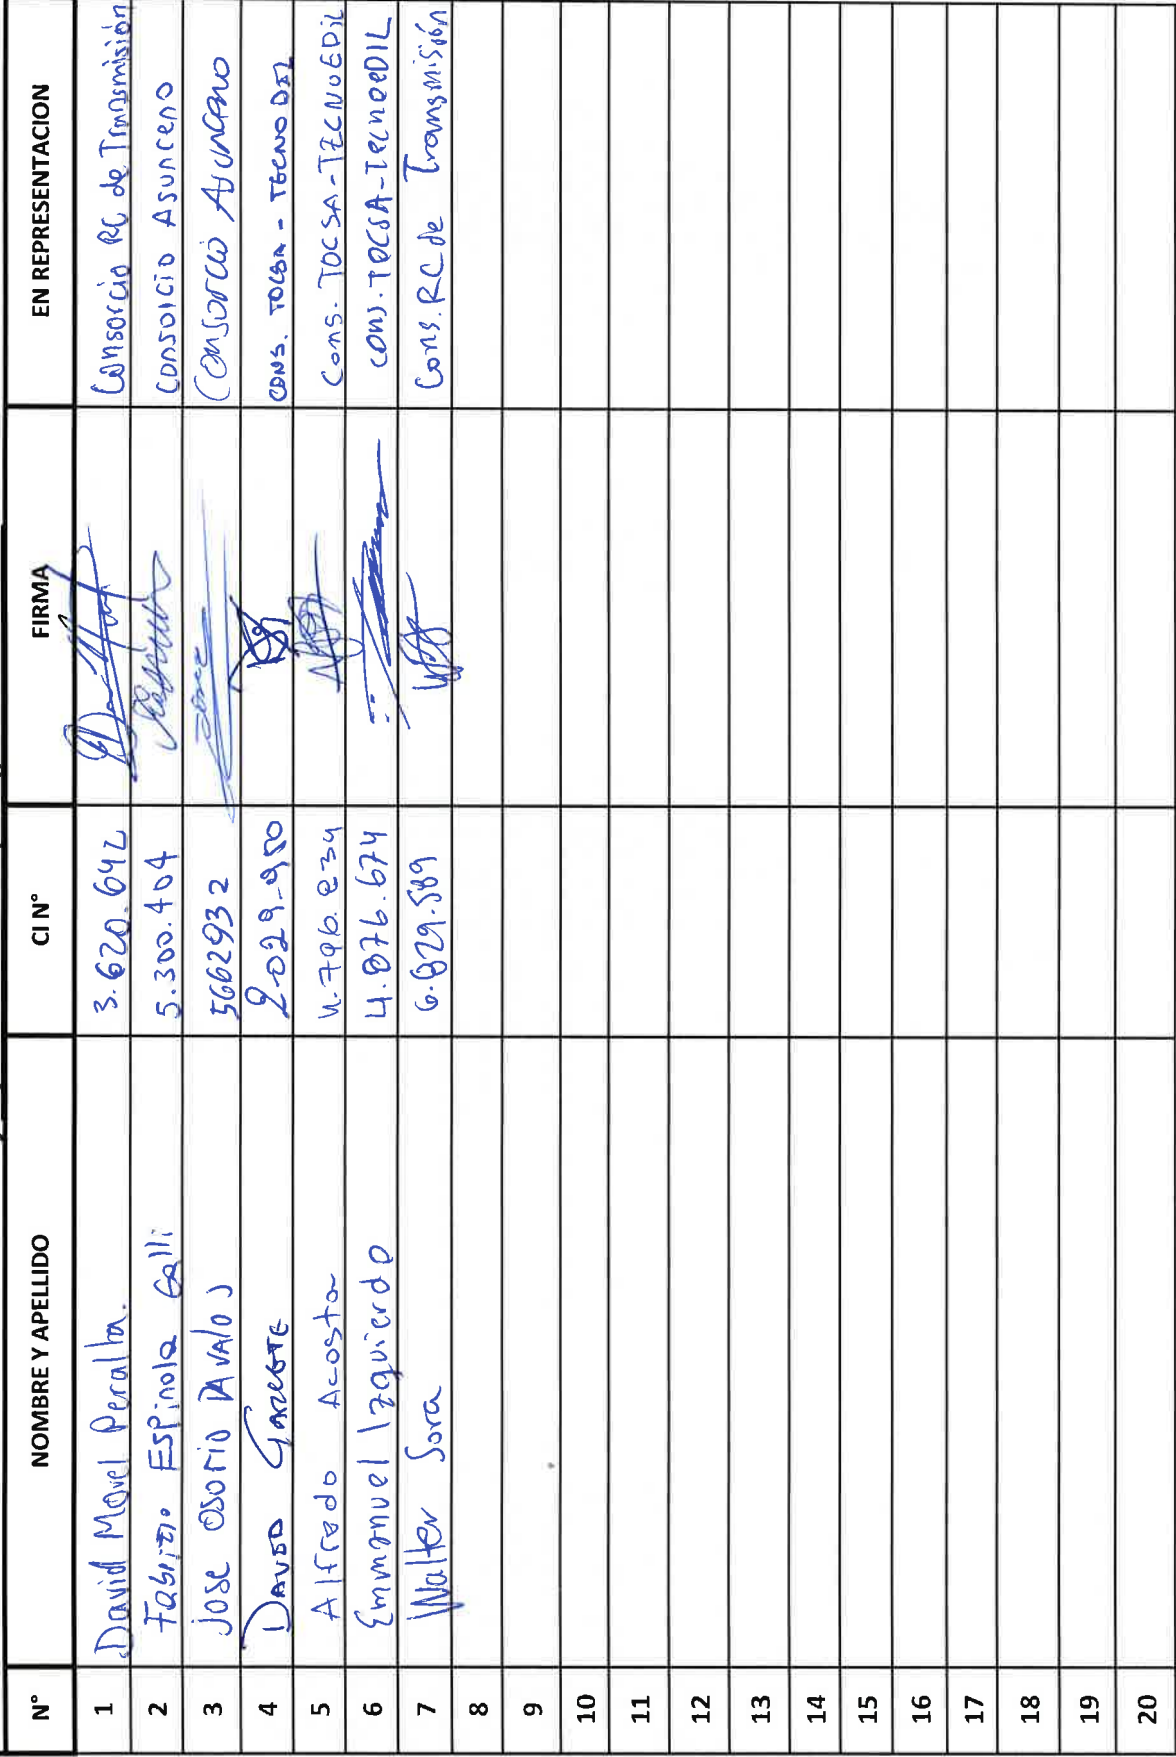 N° NOMBRE Y APELLIDO CI N° FIRMA EN REPRESENTACION
1 David Peralta. 3.620.642 Consorcio RC de Transmisión
2 Fabrizio Espinola Galli 5.300.404 Consorcio Asunceno
3 Jose Osorio Davalos 5662932 Consorcio Asunceno
4 David Gazette 2.029.980 Cons. TOCSA - TECNODIL
5 Alfredo Acosta 4.796.834 Cons. TOCSA-TECNOEDIL
6 Emmanuel Izquierdo 4.876.674 Cons. TOCSA-TecnoeDIL
7 Walter Sora 6.829.589 Cons. RC de Transmisión
8
9
10
11
12
13
14
15
16
17
18
19
20